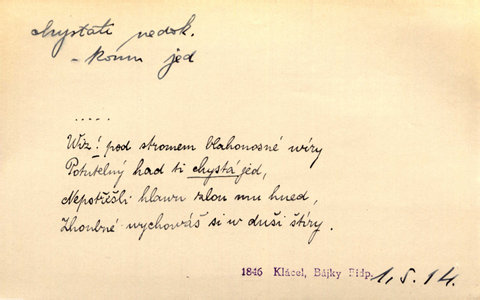 chystati nedok.
- komu jed
.....
Wiz! pod stromem blahonosné wíry
Potutelný had ti chystá jed,
Nepotřešli hlawu zlou mu hned,
Zhoubné wychowáš si w duši štíry.
1846 Klácel, Bájky Bidp. 1,5.14.